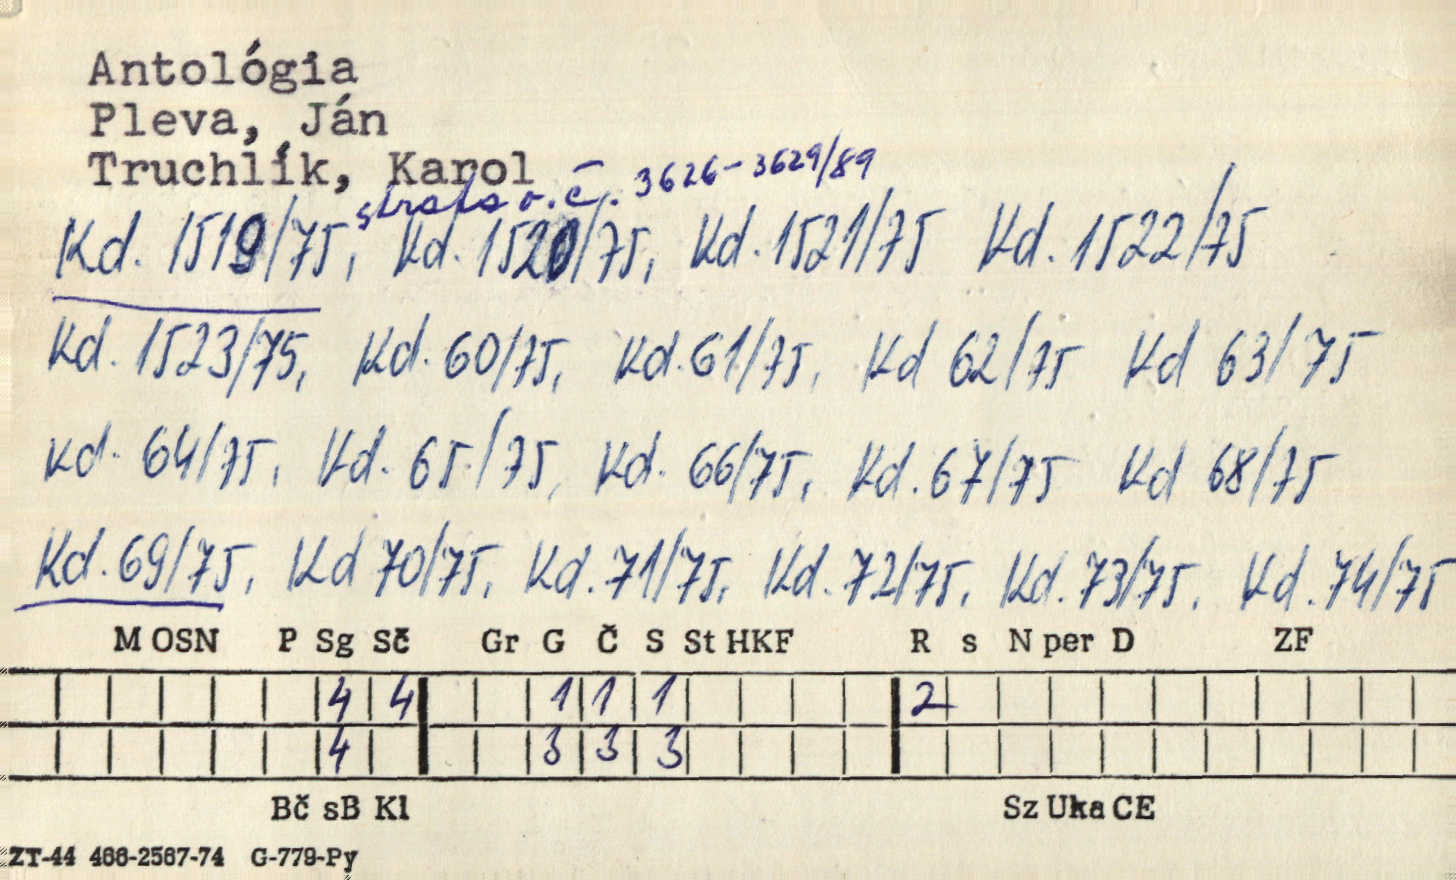 Antológia
Pleva, Ján
Truchlík, Karol
strata o.č. 3626-3629/89
Kd. 1519/75, Kd. 1520/75, Kd. 1521/75 Kd. 1522/75
Kd. 1523/75, Kd. 60/75, Kd. 61/75, Kd 62/75 Kd 63/75
Kd. 64/75, Kd. 65/75, Kd. 66/75, Kd. 67/75 Kd 68/75
Kd. 69/75, Kd 70/75, Kd. 71/75, Kd. 72/75, Kd. 73/75, Kd. 74/75
M OSN P Sg Sč Gr G Č S St HKF R s N per D ZF
4 4 1 1 1 2
4 3 3 3
Bč sB Kl Sz Uka CE
ZT-44 466-2567-74 G-779-Py